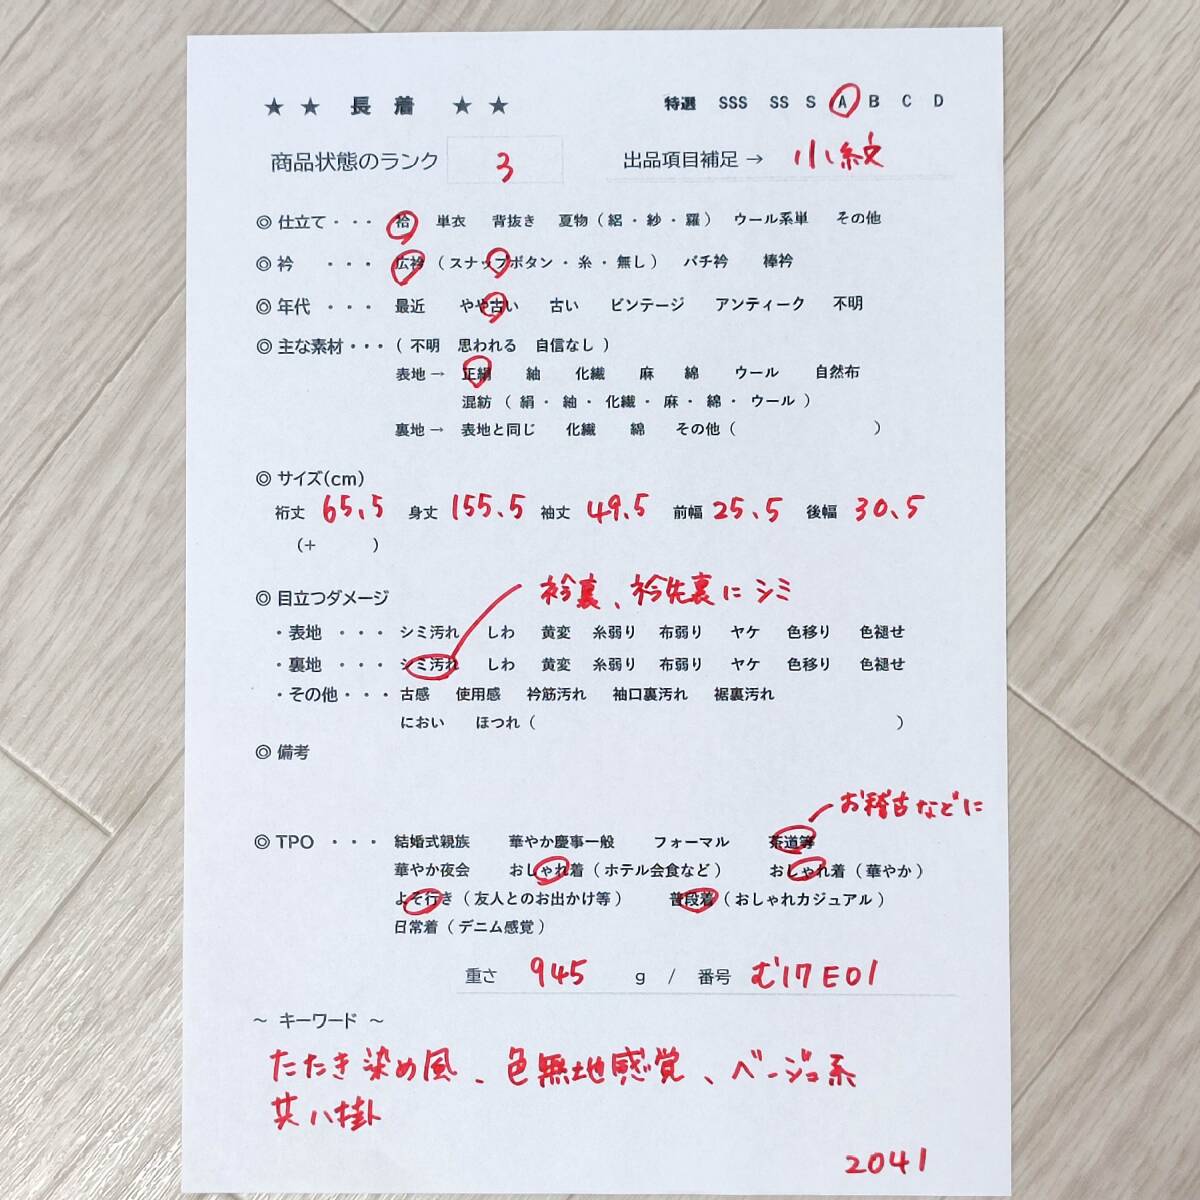 ★ ★ 長 着 ★ ★ 特選 SSS SS S A B C D
商品状態のランク 3 出品項目補足 → 小紋
◎ 仕立て ・・・ 袷 単衣 背抜き 夏物 ( 絽 ・ 紗 ・ 羅 ) ウール系単 その他
◎ 衿 ・・・ 広衿 ( スナップボタン ・ 糸 ・ 無し ) バチ衿 棒衿
◎ 年代 ・・・ 最近 やや古い 古い ビンテージ アンティーク 不明
◎ 主な素材 ・・・ ( 不明 思われる 自信なし )
表地 → 正絹 紬 化繊 麻 綿 ウール 自然布
混紡 ( 絹 ・ 紬 ・ 化繊 ・ 麻 ・ 綿 ・ ウール )
裏地 → 表地と同じ 化繊 綿 その他 ( )
◎ サイズ(cm)
裄丈 65.5 身丈 155.5 袖丈 49.5 前幅 25.5 後幅 30.5
(+ )
衿裏、衿先裏にシミ
◎ 目立つダメージ
・表地 ・・・ シミ汚れ しわ 黄変 糸弱り 布弱り ヤケ 色移り 色褪せ
・裏地 ・・・ シミ汚れ しわ 黄変 糸弱り 布弱り ヤケ 色移り 色褪せ
・その他 ・・・ 古感 使用感 衿筋汚れ 袖口裏汚れ 裾裏汚れ
におい ほつれ ( )
◎ 備考
お稽古などに
◎ TPO ・・・ 結婚式親族 華やか慶事一般 フォーマル 茶道等
華やか夜会 おしゃれ着 ( ホテル会食など ) おしゃれ着 ( 華やか )
よそ行き ( 友人とのお出かけ等 ) 普段着 ( おしゃれカジュアル )
日常着 ( デニム感覚 )
重さ 945 g / 番号 む17E01
～ キーワード ～
たたき染め風、色無地感覚、ベージュ系
共八掛
2041